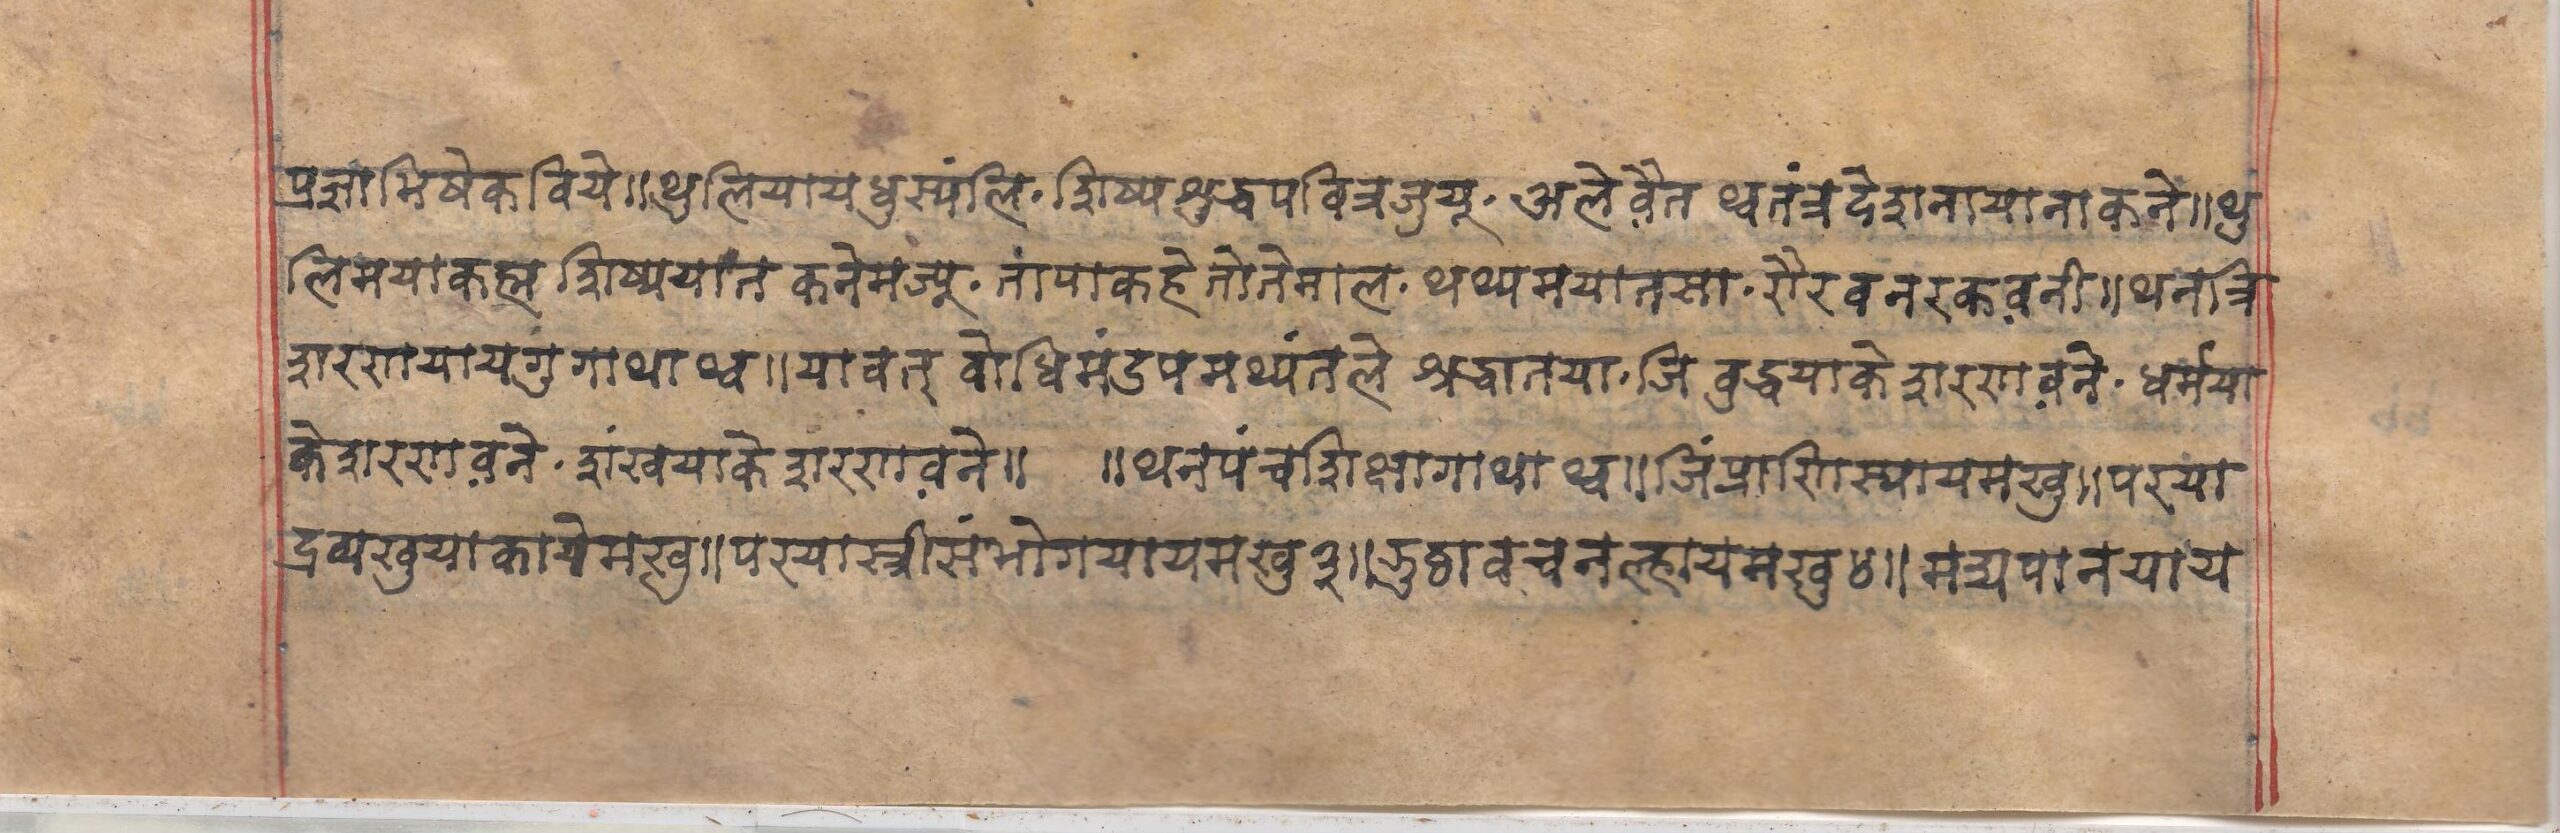 प्रज्ञाभिषेकविये॥थुलियायधुस्यंलि॰शिष्यशुद्धपवित्रजुयू॰अले वैत थ्वतंत्रदेशनायानाकने॥थु
लिमयाकह्म शिष्ययात कनेमज्यू॰तापाकहे तोतेमाल॰थथ्यमयातसा॰रौरवनरकवनी॥थनत्रि
शरणयायगुगाथाथ्व॥यावत् वोधिमंडपमथ्यंतले श्रद्धातया॰जि वुद्धयाकेशरणवने॰धर्मया
केशरणवने॰शंखयाकेशरणवने॥ ॥थनपंचशिक्षागाथाथ्व॥जिंप्राणिस्यायमखु॥परया
द्रव्यखुयाकायेमखु॥परयास्त्रीसंभोगयायमखु३॥झुठावचनल्हायमखु४॥मद्यपानयाय